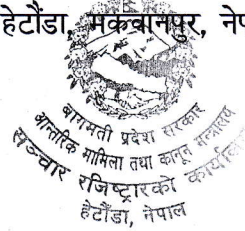 हेटौंडा, मकवानपुर, नेप
बागमती प्रदेश सरकार
आन्तरिक मामिला तथा कानून मन्त्रालय
सञ्चार रजिष्ट्रारको कार्यालय
हेटौंडा, नेपाल